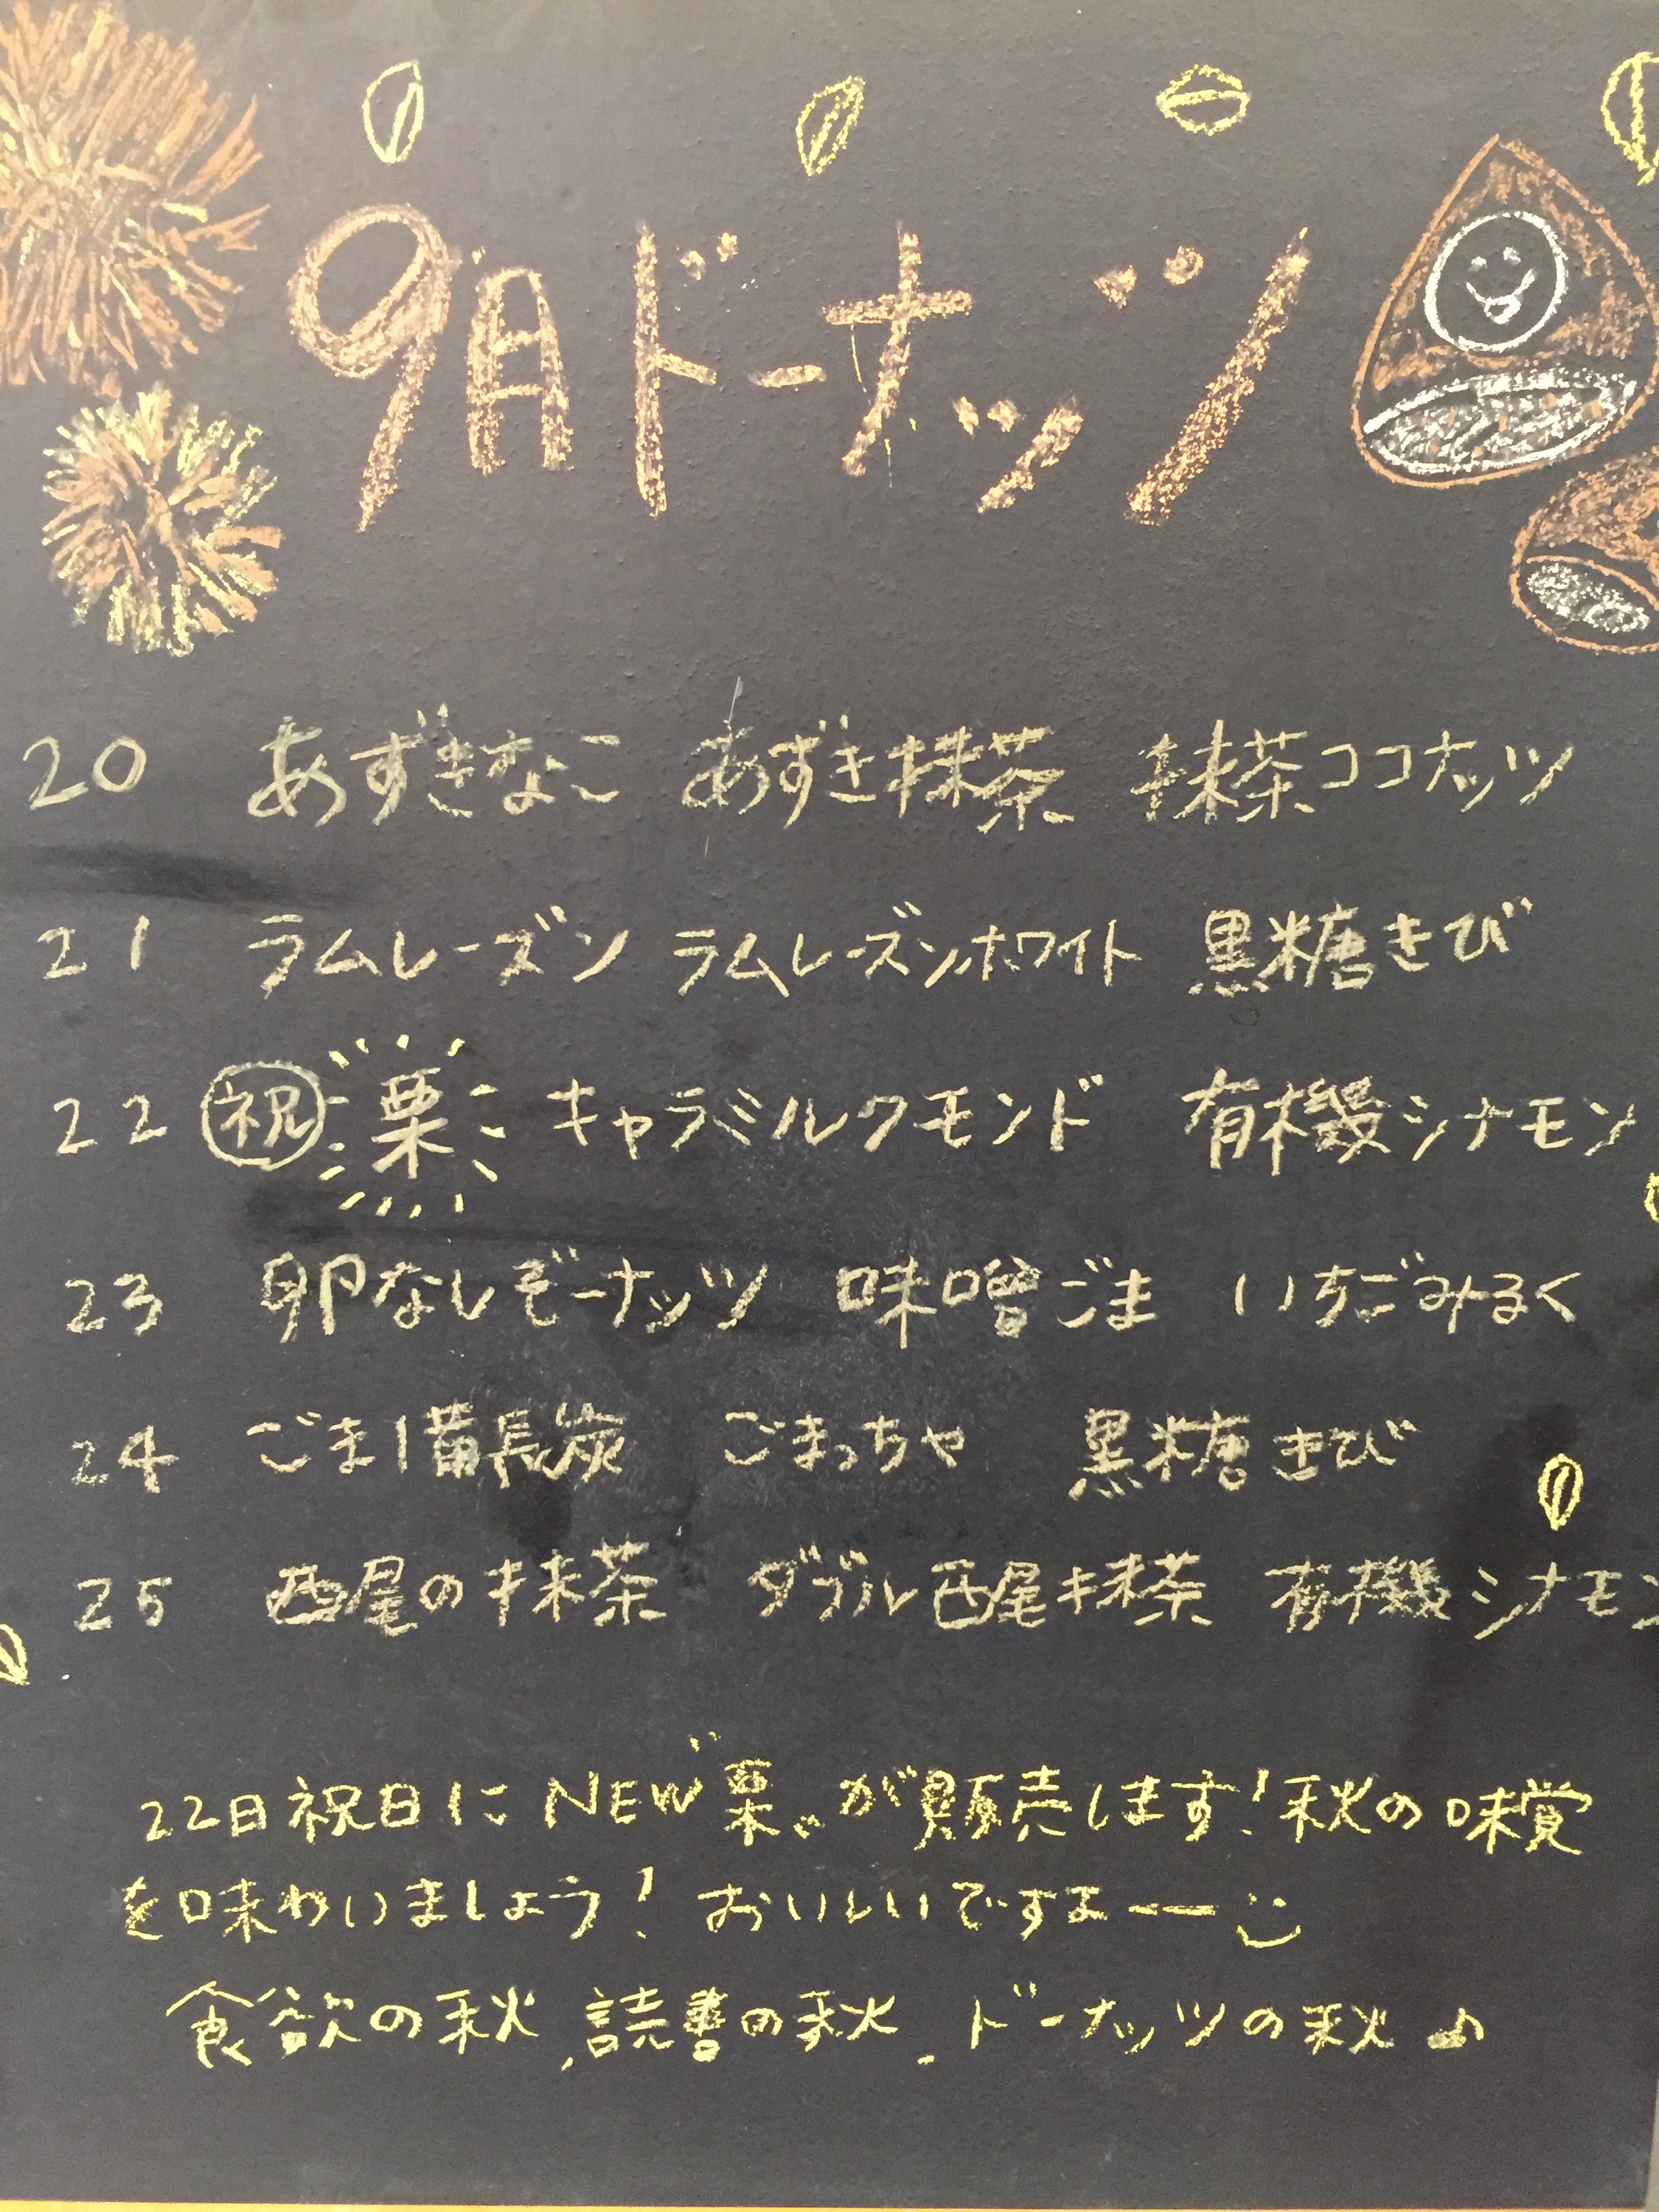 9月ドーナッツ
20 あずきなこ あずき抹茶 抹茶ココナッツ
21 ラムレーズン ラムレーズンホワイト 黒糖きび
22 祝 栗 キャラミルクモンド 有機シナモン
23 卵なしドーナッツ 味噌ごま いちごみるく
24 ごま備長炭 ごまっちゃ 黒糖きび
25 西尾の抹茶 ダブル西尾抹茶 有機シナモン
22日祝日にNEW"栗"が販売します!秋の味覚
を味わいましょう!おいしいですよーー
食欲の秋、読書の秋、ドーナッツの秋♪